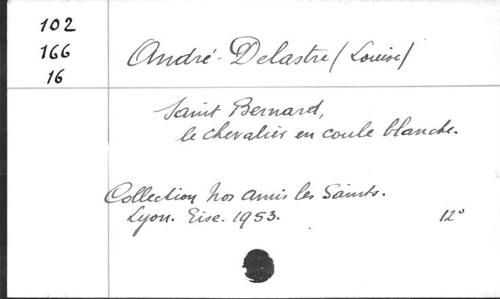 102
166
16
André-Delastre (Louise)
Saint Bernard,
le chevalier en coule blanche.
Collection Nos amis les Saints.
Lyon. Eise. 1953. 12°